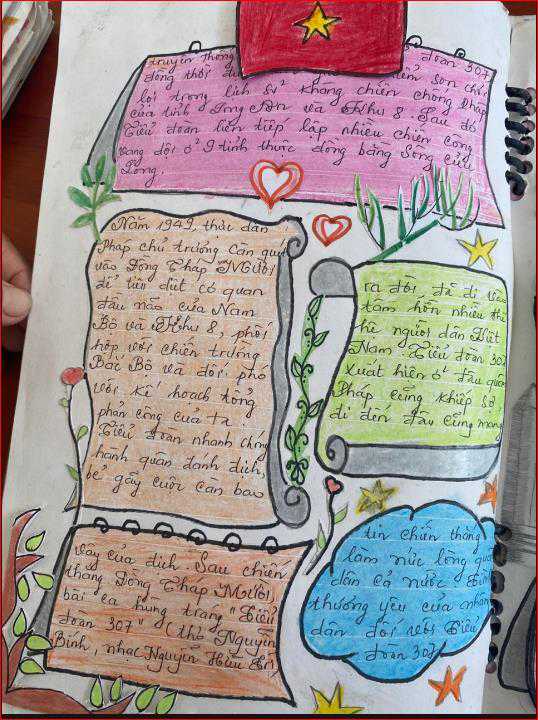 truyền thống đoàn 307
đồng thời son chói
lọi trong lịch sử kháng chiến chống Pháp
của tỉnh Long An và Khu 8. Sau đó
Tiểu đoàn liên tiếp lập nhiều chiến công
vang dội ở 9 tỉnh thuộc đồng bằng Sông Cửu
Long.
Năm 1949, thực dân
Pháp chủ trương càn quy
vào Đồng Tháp Mười
để cơ quan
đầu não của Nam
Bộ và Khu 8, phối
hợp với chiến trường
Bắc Bộ và đối phó
với kế hoạch tổng
phản công của ta.
Tiểu đoàn nhanh chóng
hành quân đánh địch,
bẻ gãy cuộc càn bao
vây của địch. Sau chiến
thắng Đồng Tháp Mười,
bài ca hùng tráng "Tiểu
đoàn 307" (thơ Nguyễn
Bính, nhạc Nguyễn Hữu Trí)
ra đời đã đi vào
tâm hồn nhiều thế
hệ người dân Việt
Nam. Tiểu đoàn 307
xuất hiện ở đâu quân
Pháp cũng khiếp sợ
đi đến đâu cũng mang
tin chiến thắng
làm nức lòng quâ
dân cả nước.
thương yêu của nhân
dân đối với Tiểu
đoàn 307